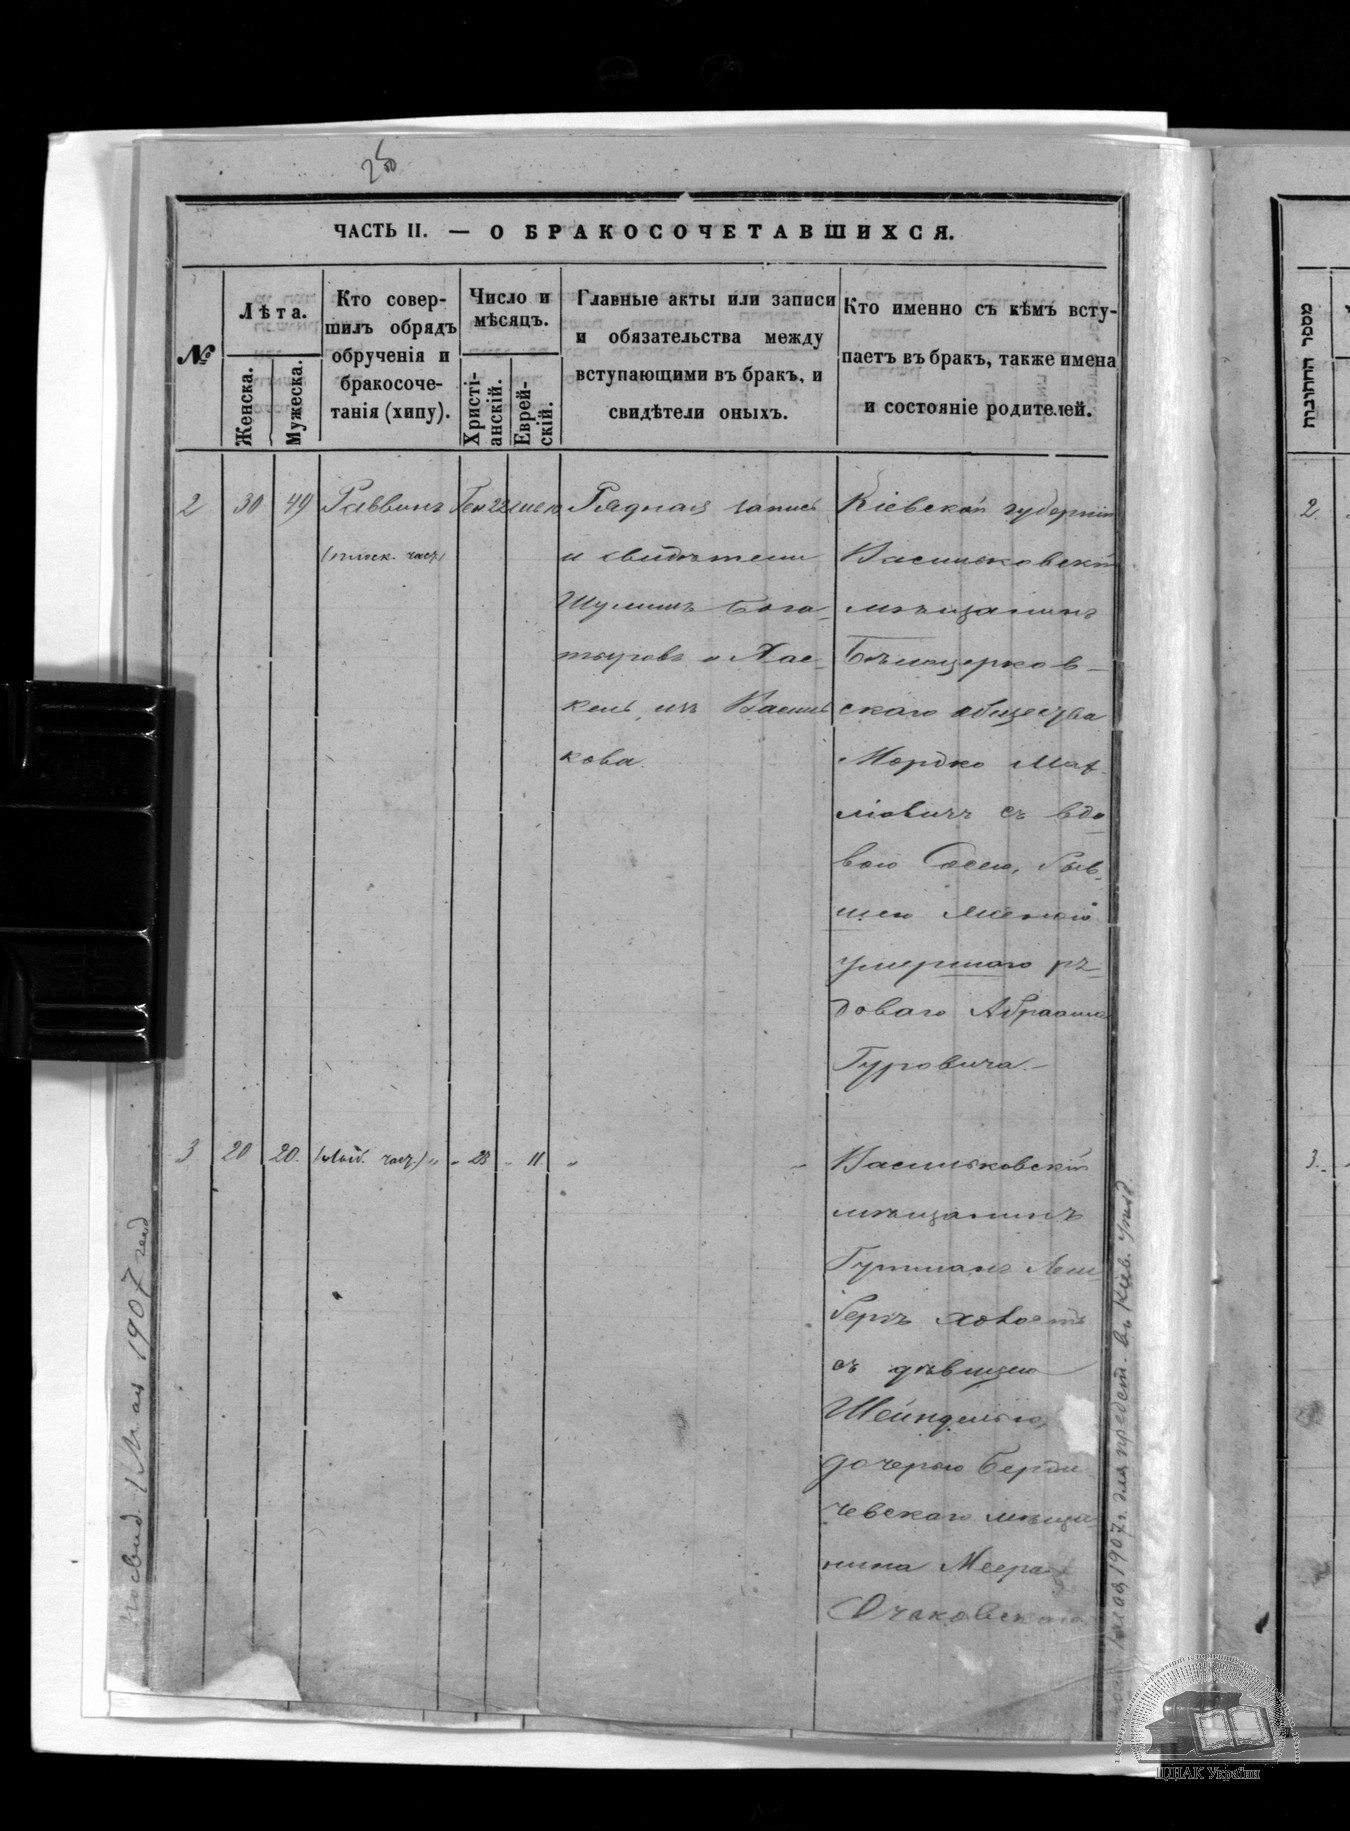 ЧАСТЬ II. — О БРАКОСОЧЕТАВШИХСЯ.
№
Лѣта.
Женска.
Мужеска.
Кто совер-
шилъ обрядъ
обрученія и
бракосоче-
танія (хипу).
Число и
мѣсяцъ.
Христі-
анскій.
Еврей-
скій.
Главные акты или записи
и обязательства между
вступающими въ бракъ, и
свидѣтели оныхъ.
Кто именно съ кѣмъ всту-
паетъ въ бракъ, также имена
и состояніе родителей.
2
30
49
Раввинъ
Рядная запись
и свидѣтели
Шулимъ Бога-
тыровъ и Хас-
кель изъ Василь
кова.
Кіевской губерніи
Васильковскій
мѣщанинъ
Бѣлоцерков-
скаго общества
Мордко
съ вдо
вою быв-
шею женою
умершаго ря
доваго Абраама
Гурговича.—
3
20
20.
„ 23
„ 11
„
Васильковскій
мѣщанинъ
Гутманъ Лей
беръ
съ дѣвицею
Шейнделью,
дочерью Берди
чевскаго мѣща
нина Меера
Очаковскаго.
1 Мая 1907 года
1907 г. для предст. въ Кіев.
מספר החתונות
2.
3.
ЦДІАК України